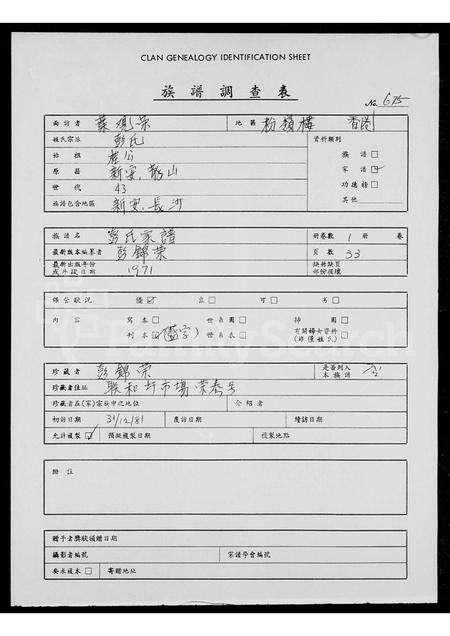 CLAN GENEALOGY IDENTIFICATION SHEET
族譜調查表
No. 675
面訪者 葉 榮 地區 粉嶺樓 香港
姓氏宗派 彭氏 資料類別
始祖 族譜 □
原籍 新安, 家譜 ☑
世代 43 功德榜 □
族譜包含地區 新安, 長沙 其他
族譜名 彭氏家譜 冊卷數 1 冊 卷
最新版本編纂者 彭錦榮 頁數 33
最新出版年份 或斗綾日期 1971 缺冊缺頁 部份後續
保公狀況 優 ☑ 良 □ 可 □ 劣 □
內容 寫本 □ 世系圖 □ 插圖 □
刊本 □ 世系表 □ 有關婦女資料 (非僅姓氏) □
珍藏者 彭錦榮 是否列入 本族譜
珍藏者住址 聯和圩市場 榮泰号
珍藏者在(家)宗族中之地位 介紹者
初訪日期 31/12/81 覆訪日期 續訪日期
允許複製 ☑ 預擬複製日期 複製地點
附註
贈予者獎狀頒贈日期
攝影者編號 家譜學會編號
要求複本 □ 寄贈地址
FamilySearch